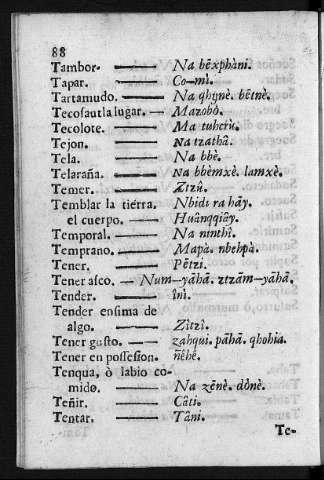 88
Tambor. — Na bēxphàni.
Tapar. — Co-mì.
Tartamudo. — Na qhynè. bētnè.
Tecosautla lugar. — Mazobò.
Tecolote. — Ma tuhcrù.
Tejon. — Na tzathâ.
Tela. — Na bbè.
Telaraña. — Na bbèmxè. lamxè.
Temer. — Ztzû.
Temblar la tierra, — Nbidi ra hāy.
el cuerpo. — Huânqqiāy.
Temporal. — Na ninthî.
Temprano. — Mapà. nbehpà.
Tener. — Pētzi.
Tener asco. — Num-yāhâ. ztzām-yāhâ.
Tender. — ìnì.
Tender ensima de
algo. — Zìtzì.
Tener gusto. — zahqui. pāhâ. qhohia.
Tener en possesion. ñêhê.
Tenqua, ò labio co-
mido. — Na zēnè. dònè.
Teñir. — Câti.
Tentar. — Tâni.
Te-